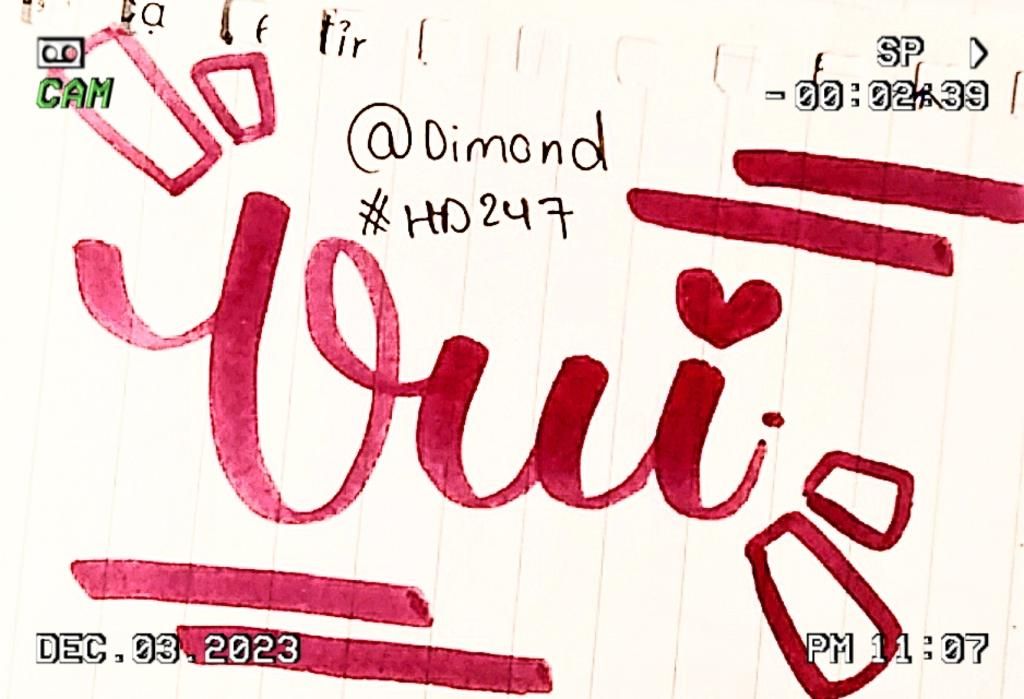 CAM
SP
-00:02:39
@Dimond
#HD247
Vui
DEC.03.2023
PM 11:07